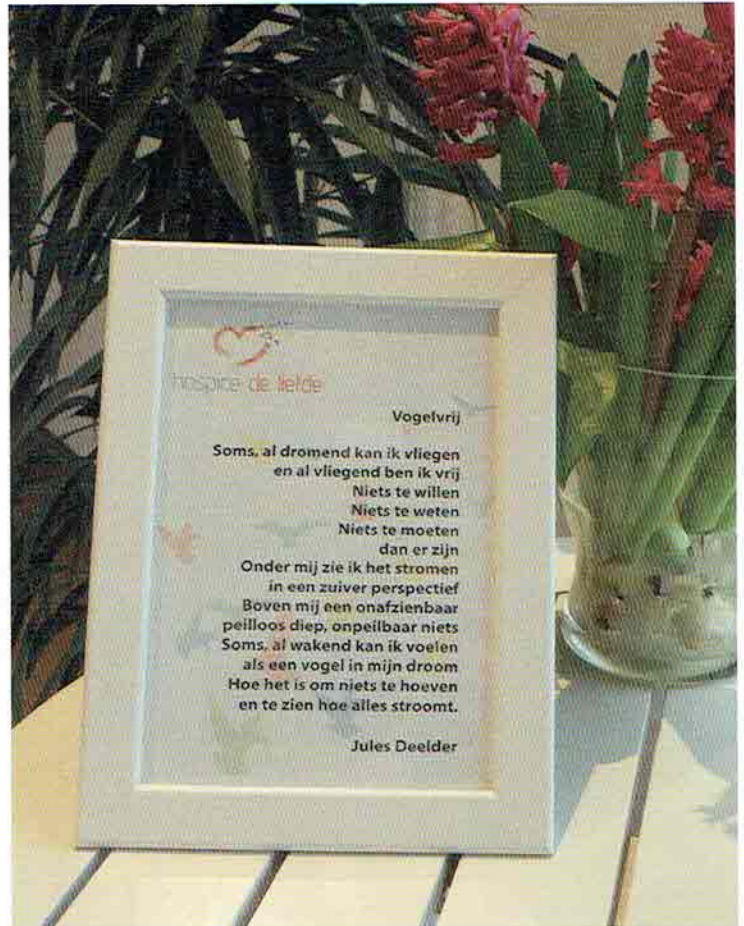 hospice de liefde
Vogelvrij
Soms, al dromend kan ik vliegen
en al vliegend ben ik vrij
Niets te willen
Niets te weten
Niets te moeten
dan er zijn
Onder mij zie ik het stromen
in een zuiver perspectief
Boven mij een onafzienbaar
peilloos diep, onpeilbaar niets
Soms, al wakend kan ik voelen
als een vogel in mijn droom
Hoe het is om niets te hoeven
en te zien hoe alles stroomt.
Jules Deelder